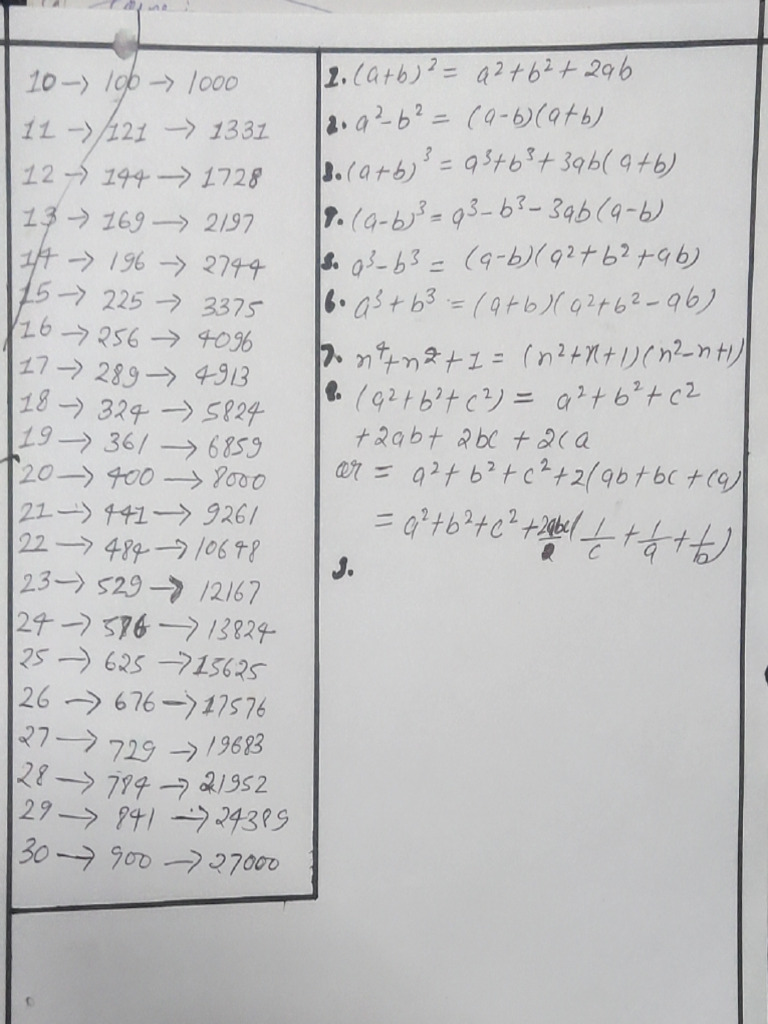 10 → 100 → 1000
11 → 121 → 1331
12 → 144 → 1728
13 → 169 → 2197
14 → 196 → 2744
15 → 225 → 3375
16 → 256 → 4096
17 → 289 → 4913
18 → 324 → 5824
19 → 361 → 6859
20 → 400 → 8000
21 → 441 → 9261
22 → 484 → 10648
23 → 529 → 12167
24 → 576 → 13824
25 → 625 → 15625
26 → 676 → 17576
27 → 729 → 19683
28 → 784 → 21952
29 → 841 → 24389
30 → 900 → 27000
1. (a+b)² = a²+b²+2ab
2. a²-b² = (a-b)(a+b)
3. (a+b)³ = a³+b³+3ab(a+b)
4. (a-b)³ = a³-b³-3ab(a-b)
5. a³-b³ = (a-b)(a²+b²+ab)
6. a³+b³ = (a+b)(a²+b²-ab)
7. n⁴+n²+1 = (n²+n+1)(n²-n+1)
8. (a²+b²+c²) = a²+b²+c²
+2ab+2bc+2ca
or = a²+b²+c²+2(ab+bc+ca)
= a²+b²+c²+2abc(1/c+1/a+1/b)
9.